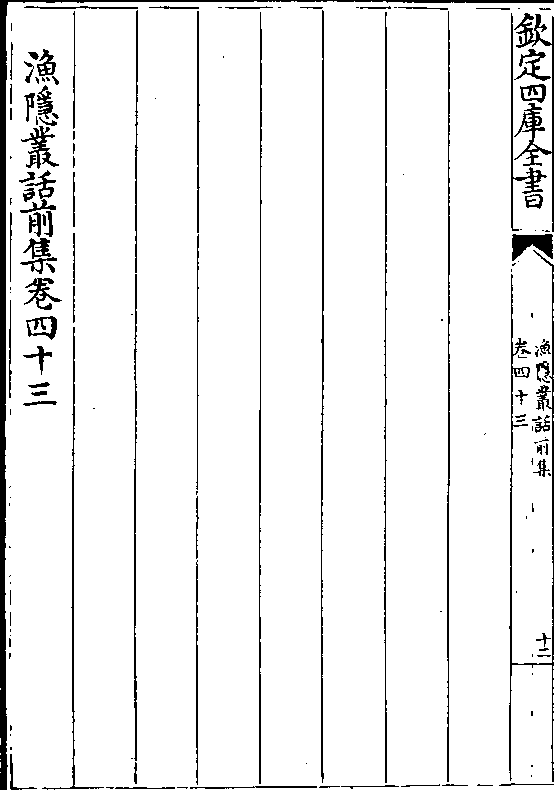 欽定四庫全書
漁隱叢話前集
卷四十三
十二
漁隱叢話前集卷四十三